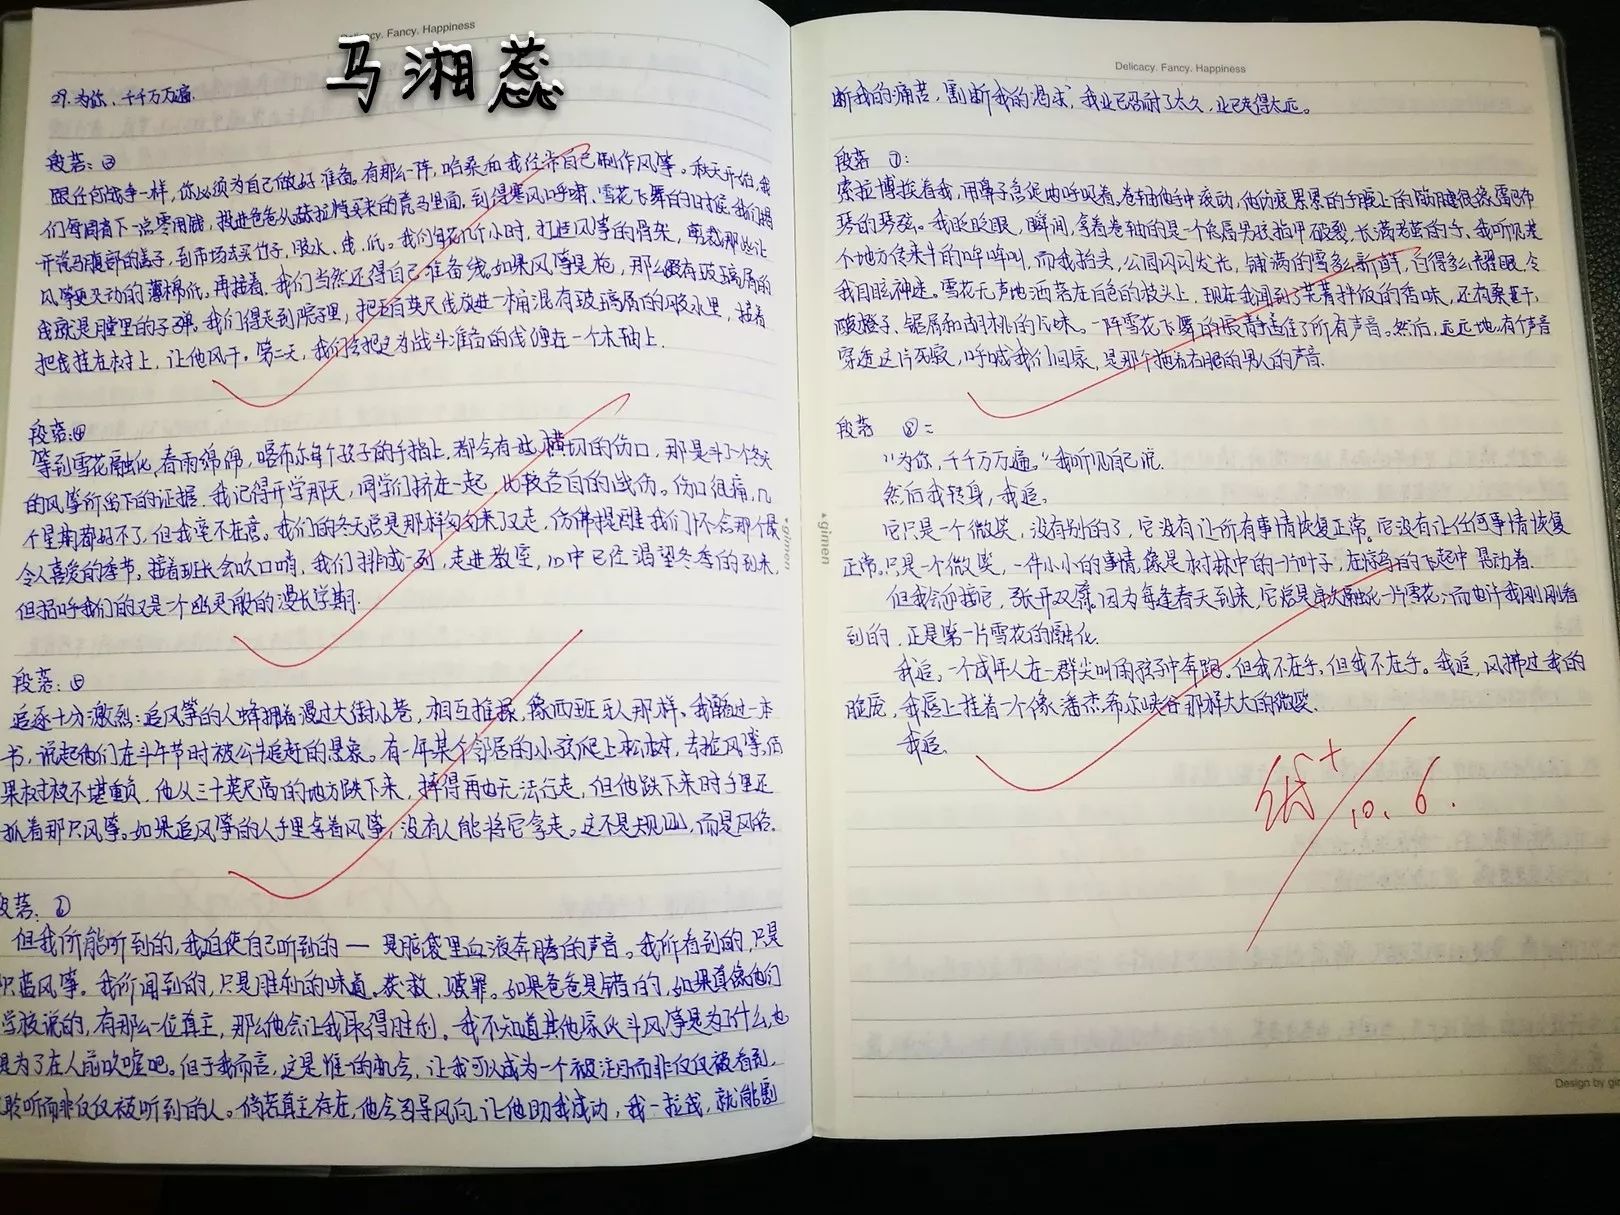 Delicacy. Fancy. Happiness
马湘蕊
29.为你，千千万万遍.
段落：③
跟任何战争一样，你必须为自己做好准备。有那么一阵，哈桑和我经常自己制作风筝。秋天开始，我
们每周省下一点零用钱，投进爸爸从赫拉特买来的瓷马里面，到得寒风呼啸、雪花飞舞的时候，我们揭
开瓷马腹部的盖子，到市场去买竹子、胶水、线、纸。我们每天几个小时，打造风筝的骨架，剪裁那些让
风筝更灵动的薄棉纸。再接着，我们当然还得自己准备线。如果风筝是枪，那么缀有玻璃屑的
线就是膛里的子弹。我们得走到院子里，把五百英尺线放进一桶混有玻璃屑的胶水里，接着
把线挂在树上，让他风干。第二天，我们会把这为战斗准备的线缠在一个木轴上.
段落：④
等到雪花融化，春雨绵绵，喀布尔每个孩子的手指上，都会有一些横切的伤口，那是斗了一个冬天
的风筝所留下的证据。我记得开学那天，同学们挤在一起，比较各自的战伤。伤口很痛，几
个星期都好不了，但我毫不在意。我们的冬天总是那样匆匆来了又走，伤疤提醒我们怀念那个最
令人喜爱的季节。接着班长会吹口哨，我们排成一列，走进教室，心中已经渴望冬季的到来，
但招呼我们的又是一个幽灵般的漫长学期.
段落：⑤
追逐十分激烈：追风筝的人蜂拥着漫过大街小巷，相互推搡，像西班牙人那样，我看过一本
书，说起他们在斗牛节时被公牛追赶的景象。有一年某个邻居的小孩爬上松树，去捡风筝，结
果树枝不堪重负，他从三十英尺高的地方跌下来，摔得再也无法行走，但他跌下来时手里还
抓着那只风筝。如果追风筝的人手里拿着风筝，没有人能将它拿走。这不是规则，而是风俗。
段落：⑥
但我所能听到的，我迫使自己听到的——是脑袋里血液奔腾的声音。我所看到的，只是
只蓝风筝。我所闻到的，只是胜利的味道。获救，赎罪。如果爸爸是错的，如果真像他们
学校说的，有那么一位真主，那么他会让我取得胜利。我不知道其他家伙斗风筝是为了什么，也
是为了在人前吹嘘吧。但于我而言，这是惟一的机会，让我可以成为一个被注目而非仅仅被看到，
聆听而非仅仅被听到的人。倘若真主存在，他会引导风向，让他助我成功，我一拉线，就能割
gimen
Delicacy. Fancy. Happiness
断我的痛苦，割断我的渴求，我业已忍耐了太久，业已走得太远。
段落 ⑦：
索拉博挨着我，用鼻子急促地呼吸着。卷轴他手中滚动，他伤痕累累的手腕上的筋腱很像雷巴布
琴的琴弦。我眨眨眼，瞬间，拿着卷轴的是一个兔唇男孩指甲破裂，长满老茧的手、我听见某
个地方传来牛的哞哞叫，而我抬头，公园闪闪发光，铺满的雪多么新鲜，白得多么耀眼，令
我目眩神迷。雪花无声地洒落在白色的枝头上，现在我闻到了芜菁拌饭的香味，还有桑葚干，
酸橙子、锯屑和胡桃的气味。一阵雪花飞舞的寂静遮住了所有声音。然后，远远地，有个声音
穿透这片死寂，呼喊我们回家，是那个拖着右腿的男人的声音.
段落 ⑧：
“为你，千千万万遍。”我听见自己说.
然后我转身，我追。
它只是一个微笑，没有别的了，它没有让所有事情恢复正常。它没有让任何事情恢复
正常。只是一个微笑，一件小小的事情，像是树林中的一片叶子，在惊鸟的飞起中晃动着.
但我会迎接它，张开双臂，因为每逢春天到来，它总是每次融化一片雪花；而也许我刚刚看
到的，正是第一片雪花的融化.
我追，一个成年人在一群尖叫的孩子中奔跑。但我不在乎，但我不在乎。我追，风拂过我的
脸庞，我唇上挂着一个像潘杰希尔峡谷那样大大的微笑.
我追.
优+
10.6.